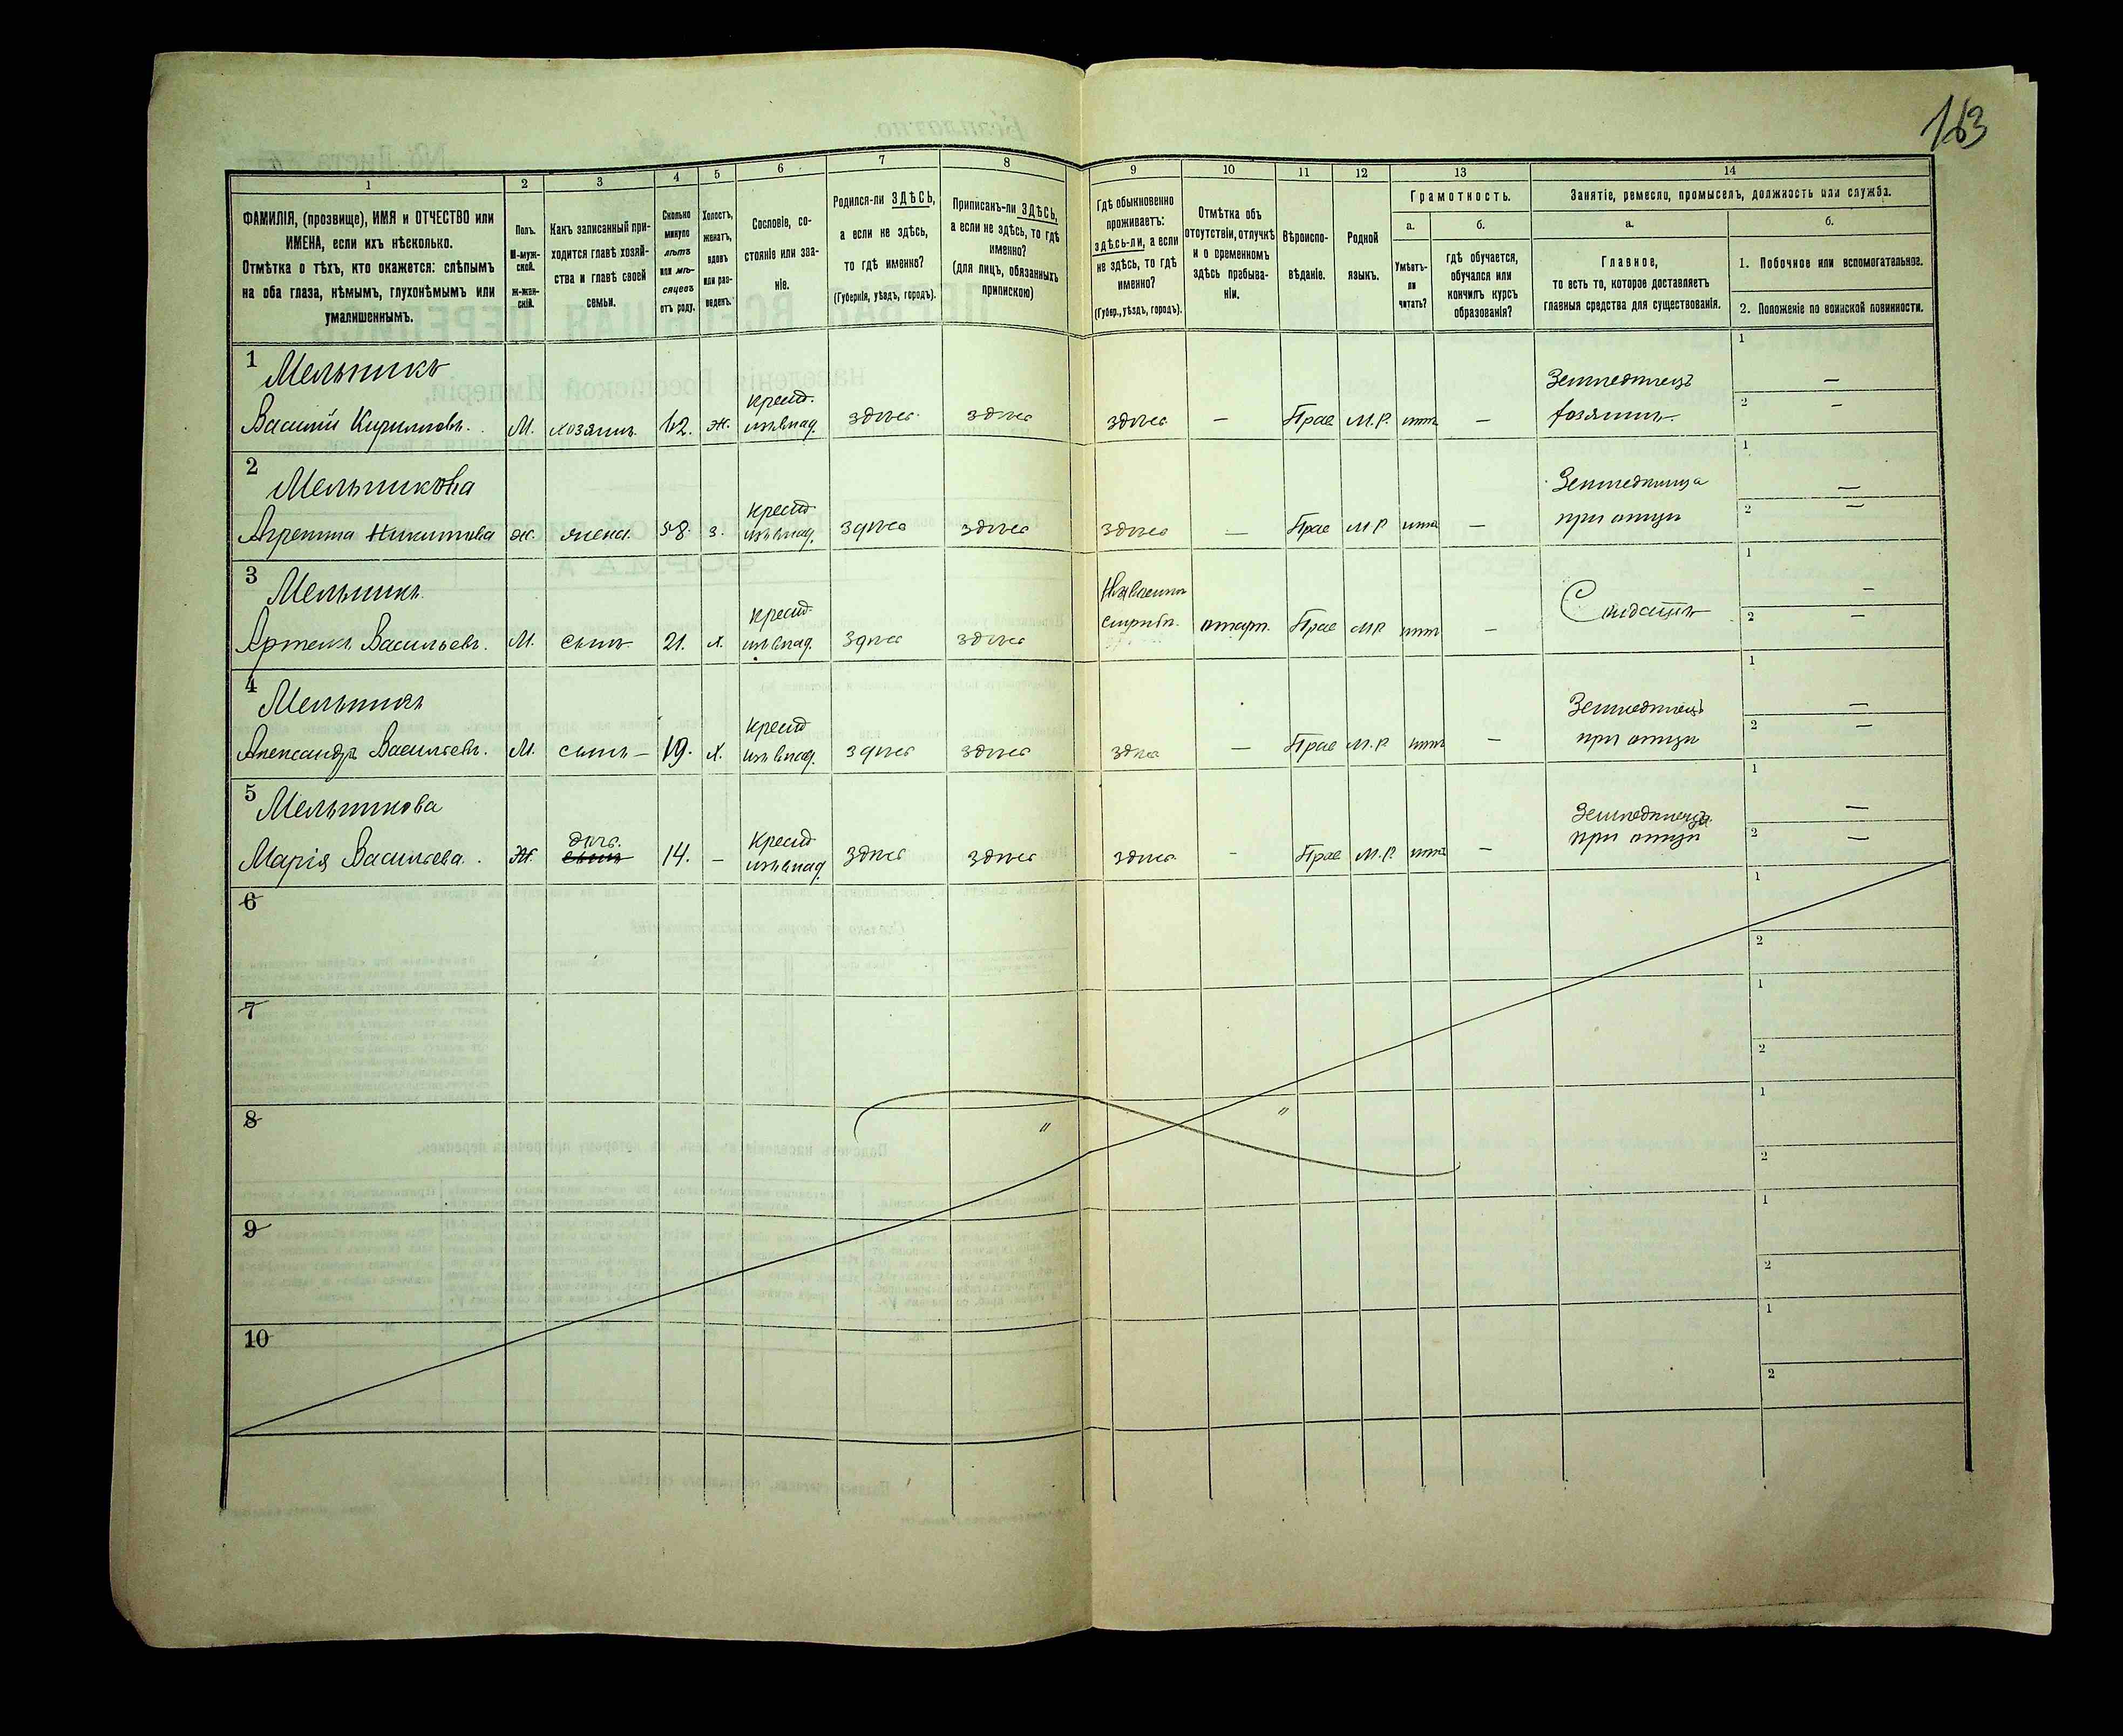 163
1
2
3
4
5
6
7
8
9
10
11
12
13
14
ФАМИЛІЯ, (прозвище), ИМЯ и ОТЧЕСТВО или
ИМЕНА, если ихъ нѣсколько.
Отмѣтка о тѣхъ, кто окажется: слѣпымъ
на оба глаза, нѣмымъ, глухонѣмымъ или
умалишеннымъ.
Полъ.
М-муж-
ской.
Ж-жен-
скій.
Какъ записанный при-
ходится главѣ хозяй-
ства и главѣ своей
семьи.
Сколько
минуло
лѣтъ
или мѣ-
сяцевъ
отъ роду.
Холостъ,
женатъ,
вдовъ
или раз-
веденъ.
Сословіе, со-
стояніе или зва-
ніе.
Родился-ли ЗДѢСЬ,
а если не здѣсь,
то гдѣ именно?
(Губернія, уѣздъ, городъ).
Приписанъ-ли ЗДѢСЬ,
а если не здѣсь, то гдѣ
именно?
(для лицъ, обязанныхъ
припискою)
Гдѣ обыкновенно
проживаетъ:
здѣсь-ли, а если
не здѣсь, то гдѣ
именно?
(Губер., уѣздъ, городъ).
Отмѣтка объ
отсутствіи, отлучкѣ
и о временномъ
здѣсь пребыва-
ніи.
Вѣроиспо-
вѣданіе.
Родной
языкъ.
Грамотность.
а.
Умѣетъ-
ли
читать?
б.
гдѣ обучается,
обучался или
кончилъ курсъ
образованія?
Занятіе, ремесло, промыселъ, должность или служба.
а.
Главное,
то есть то, которое доставляетъ
главныя средства для существованія.
б.
1. Побочное или вспомогательное.
2. Положеніе по воинской повинности.
1
Мельникъ
Василій Кирилловъ. М. хозяинъ 62. ж. крест. изъ влад. здѣсь здѣсь здѣсь — Прав М.Р. нѣтъ —
Земледѣлецъ
хозяинъ
1 —
2 —
2
Мельникова
Агрепина Никитова ж. жена 58. з. крест изъ влад. здѣсь здѣсь здѣсь — Прав М Р нѣтъ —
Земледѣлица
при отцѣ
1 —
2 —
3
Мельникъ
Артемъ Васильевъ. М. сынъ 21. х. крест изъ влад. здѣсь здѣсь
На военной
службѣ. Прав МР нѣтъ —
Солдатъ
1 —
2 —
4
Мельникъ
Александръ Васильевъ. М. сынъ — 19. х. крест изъ влад. здѣсь здѣсь здѣсь — Прав М.Р нѣтъ —
Земледѣлецъ
при отцѣ
1 —
2 —
5
Мельникова
Марія Васильева. Ж. дочь. 14. — крест изъ влад. здѣсь здѣсь здѣсь — Прав М.Р. нѣтъ —
Земледѣлица
при отцѣ
1 —
2 —
6
1
2
7
1
2
8
" "
1
2
9
1
2
10
1
2